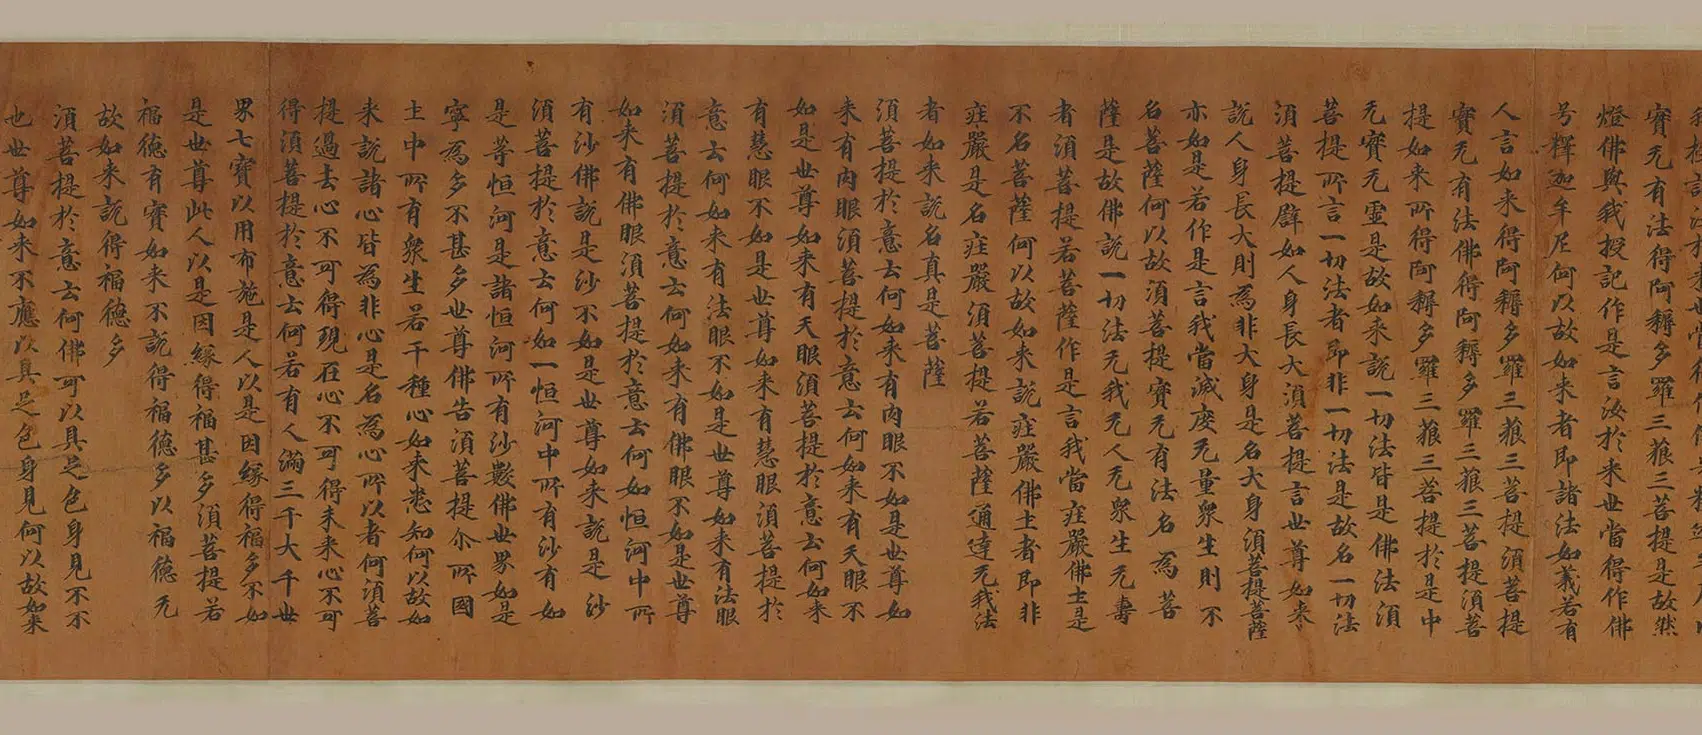 實无有法得阿耨多羅三藐三菩提是故然
燈佛與我授記作是言汝於来世當得作佛
号釋迦牟尼何以故如来者即諸法如義若有
人言如来得阿耨多羅三藐三菩提須菩提
實无有法佛得阿耨多羅三藐三菩提須菩
提如来所得阿耨多羅三藐三菩提於是中
无實无虛是故如来說一切法皆是佛法須
菩提所言一切法者即非一切法是故名一切法
須菩提譬如人身長大須菩提言世尊如来
說人身長大則為非大身是名大身須菩提菩薩
亦如是若作是言我當滅度无量衆生則不
名菩薩何以故須菩提實无有法名為菩
薩是故佛說一切法无我无人无衆生无壽
者須菩提若菩薩作是言我當莊嚴佛土是
不名菩薩何以故如来說莊嚴佛土者即非
莊嚴是名莊嚴須菩提若菩薩通達无我法
者如来說名真是菩薩
須菩提於意云何如来有肉眼不如是世尊如
来有肉眼須菩提於意云何如来有天眼不
如是世尊如来有天眼須菩提於意云何如来
有慧眼不如是世尊如来有慧眼須菩提於
意云何如来有法眼不如是世尊如来有法眼
須菩提於意云何如来有佛眼不如是世尊
如来有佛眼須菩提於意云何如恒河中所
有沙佛說是沙不如是世尊如来說是沙
須菩提於意云何如一恒河中所有沙有如
是等恒河是諸恒河所有沙數佛世界如是
寧為多不甚多世尊佛告須菩提尒所國
土中所有衆生若干種心如来悉知何以故如
来說諸心皆為非心是名為心所以者何須菩
提過去心不可得現在心不可得未来心不可
得須菩提於意云何若有人滿三千大千世
界七寶以用布施是人以是因緣得福多不如
是世尊此人以是因緣得福甚多須菩提若
福德有實如来不說得福德多以福德无
故如来說得福德多
須菩提於意云何佛可以具足色身見不不
也世尊如来不應以具足色身見何以故如来